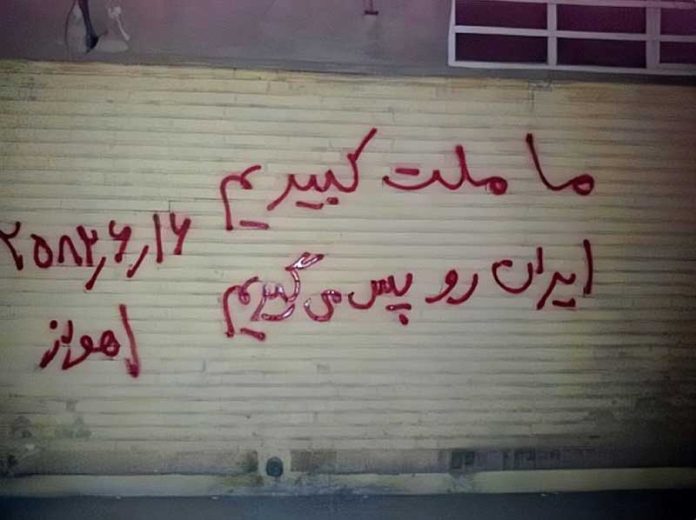 ما ملت کبیریم
ایران رو پس می گیریم
۲۵۸۲,۶,۱۶
اهواز